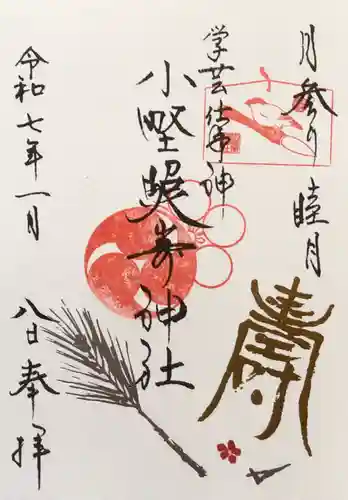 月参り 睦月
壽
学芸仕事神
小野照崎神社
令和七年一月
八日奉拝